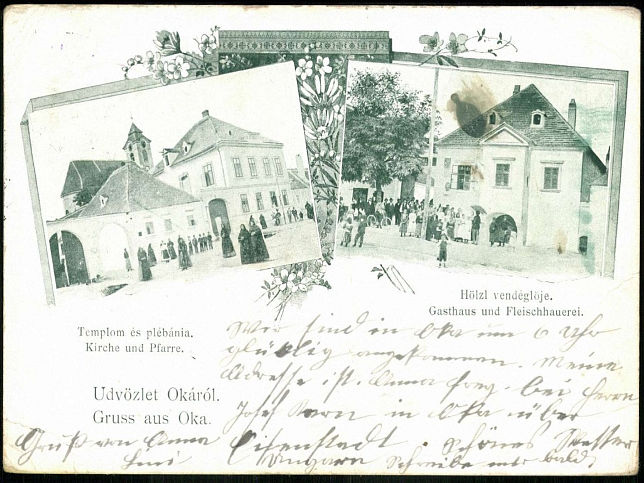 Hölzl vendéglöje.
Gasthaus und Fleischhauerei.
Templom és plébánia.
Kirche und Pfarre.
Udvözlet Okáról.
Gruss aus Oka.
Wir sind in Oka um 6 Uhr
glücklig angekommen. Meine
Adresse ist. Anna bei Herrn
Josef Kern in Oka über
Eisenstadt. Schönes Wetter
Ungarn Schreibe mir bald.
Gruß von Anna